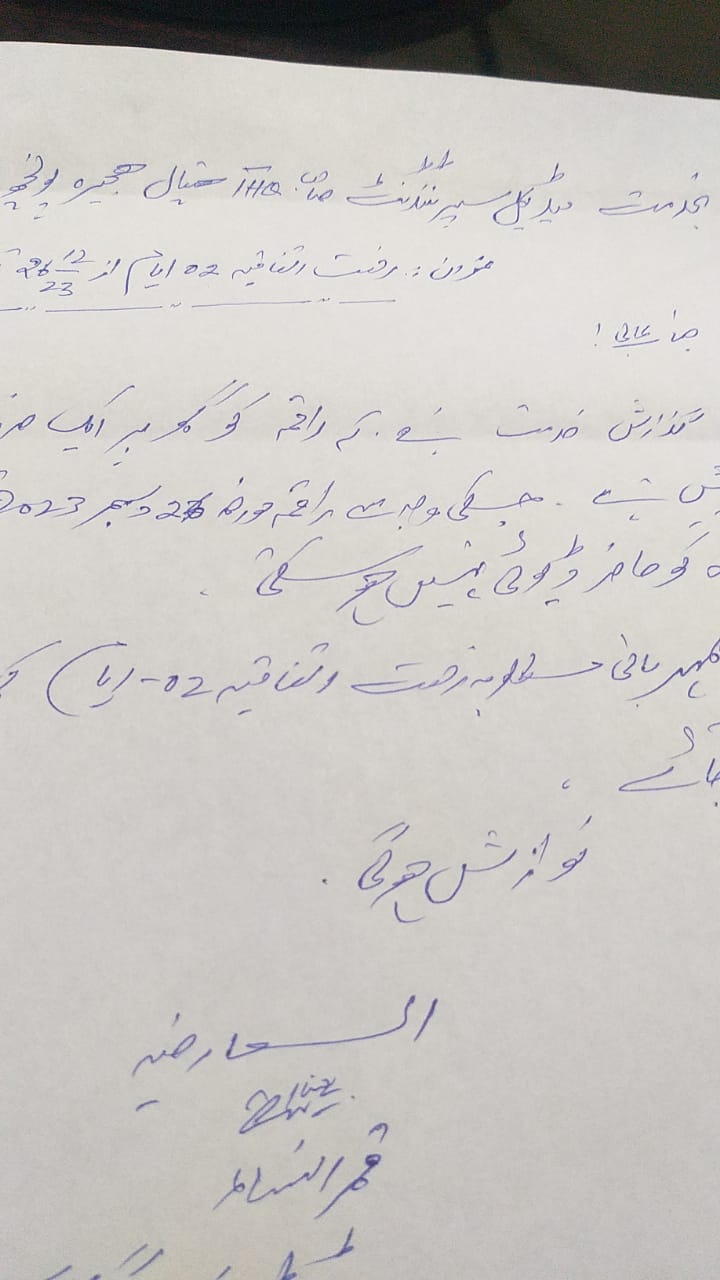 بخدمت میڈیکل سپرنٹنڈنٹ صاحب THQ ہسپتال ہجیرہ پونچھ
عنوان: رخصت اتفاقیہ 02 ایام از 26 12/23
جناب عالی!
گزارش خدمت ہے۔ کہ راقمہ کو گھر پر ایک
ہے۔ جسکی وجہ سے راقمہ مورخہ 26 دسمبر 2023
کو حاضر ڈیوٹی نہیں ہو سکتی۔
مہربانی مطلوبہ رخصت اتفاقیہ 02-ایام
جائے۔
نوازش ہوگی۔
العارضہ
قمر النساء